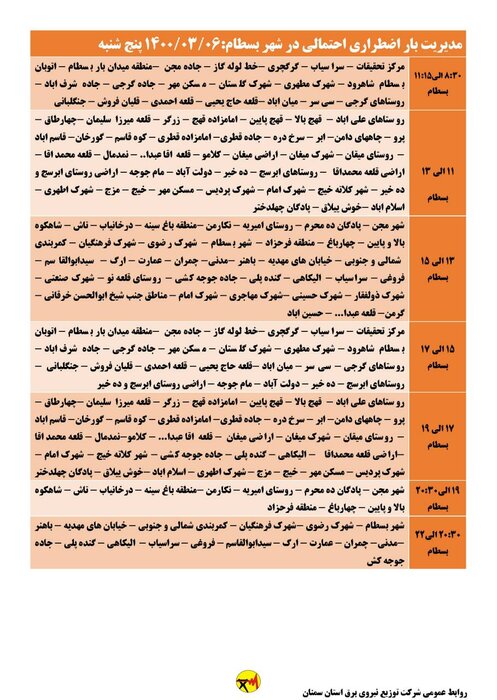 مدیریت بار اضطراری احتمالی در شهر بسطام: ۱۴۰۰/۰۳/۰۶ پنج شنبه
۸:۳۰ الی ۱۱:۱۵
بسطام
مرکز تحقیقات – سرا سیاب – گرگچری – خط لوله گاز – جاده مجن – منطقه میدان بار بسطام – اتوبان
بسطام شاهرود – شهرک مطهری – شهرک گلستان – مسکن مهر – جاده گرجی – جاده شرف اباد –
روستاهای گرجی – سی سر – میان اباد – قلعه حاج یحیی – قلعه احمدی – قلیان فروش – جنگلبانی
۱۱ الی ۱۳
بسطام
روستاهای علی اباد – قهج بالا – قهج پایین – امامزاده قهج – زرگر – قلعه میرزا سلیمان – چهارطاق –
پرو – چاههای دامن – ابر – سرخ دره – جاده قطری – امامزاده قطری – کوه قاسم – گورخان – قاسم اباد
– روستای میغان – شهرک میغان – اراضی میغان – کلامو – قلعه اقا عبدا.. – نمدمال – قلعه محمد اقا –
اراضی قلعه محمداقا – روستاهای ابرسج – ده خیر – دولت آباد – مام جوجه – اراضی روستای ابرسج و
ده خیر – شهر کلاته خیج – شهرک امام – شهرک پردیس – مسکن مهر – خیج – مزج – شهرک اطهری –
اسلام اباد – خوش ییلاق – پادگان چهلدختر
۱۳ الی ۱۵
بسطام
شهر مجن – پادگان ده محرم – روستای امیریه – نکارمن – منطقه باغ سینه – درخانیاب – تاش – شاهکوه
بالا و پایین – چهارباغ – منطقه فرحزاد – شهر بسطام – شهرک رضوی – شهرک فرهنگیان – کمربندی
شمالی و جنوبی – خیابان های مهدیه – باهنر – مدنی – چمران – عمارت – ارک – سیدابوالقاسم –
فروغی – سراسیاب – الیکاهی – گنده پلی – جاده جوجه کشی – روستای قلعه نو – شهرک صنعتی –
شهرک ذولفقار – شهرک حسینی – شهرک مهاجری – شهرک امام – مناطق جنب شیخ ابوالحسن خرقانی –
گرمن – قلعه عبدا... – حسین اباد
۱۵ الی ۱۷
بسطام
مرکز تحقیقات – سرا سیاب – گرگچری – خط لوله گاز – جاده مجن – منطقه میدان بار بسطام – اتوبان
بسطام شاهرود – شهرک مطهری – شهرک گلستان – مسکن مهر – جاده گرجی – جاده شرف اباد –
روستاهای گرجی – ... سی سر – میان اباد – قلعه حاج یحیی – قلعه احمدی – قلیان فروش – جنگلبانی –
روستاهای ابرسج – ده خیر – دولت آباد – مام جوجه – اراضی روستای ابرسج و ده خیر
۱۷ الی ۱۹
بسطام
روستاهای علی اباد – قهج بالا – قهج پایین – امامزاده قهج – زرگر – قلعه میرزا سلیمان – چهارطاق –
پرو – چاههای دامن – ابر – سرخ دره – جاده قطری – امامزاده قطری – کوه قاسم – گورخان – قاسم اباد
– روستای میغان – شهرک میغان – اراضی میغان – قلعه اقا عبدا... – کلامو – نمدمال – قلعه محمد اقا
– اراضی قلعه محمداقا – الیکاهی – گنده پلی – جاده جوجه کشی – شهر کلاته خیج – شهرک امام –
شهرک پردیس – مسکن مهر – خیج – مزج – شهرک اطهری – اسلام اباد – خوش ییلاق – پادگان چهلدختر
۱۹ الی ۲۰:۳۰
بسطام
شهر مجن – پادگان ده محرم – روستای امیریه – نکارمن – منطقه باغ سینه – درخانیاب – تاش – شاهکوه
بالا و پایین – چهارباغ – منطقه فرحزاد
۲۰:۳۰ الی ۲۲
بسطام
شهر بسطام – شهرک رضوی – شهرک فرهنگیان – کمربندی شمالی و جنوبی – خیابان های مهدیه – باهنر
– مدنی – چمران – عمارت – ارک – سیدابوالقاسم – فروغی – سراسیاب – الیکاهی – گنده پلی – جاده
جوجه کش
روابط عمومی شرکت توزیع نیروی برق استان سمنان